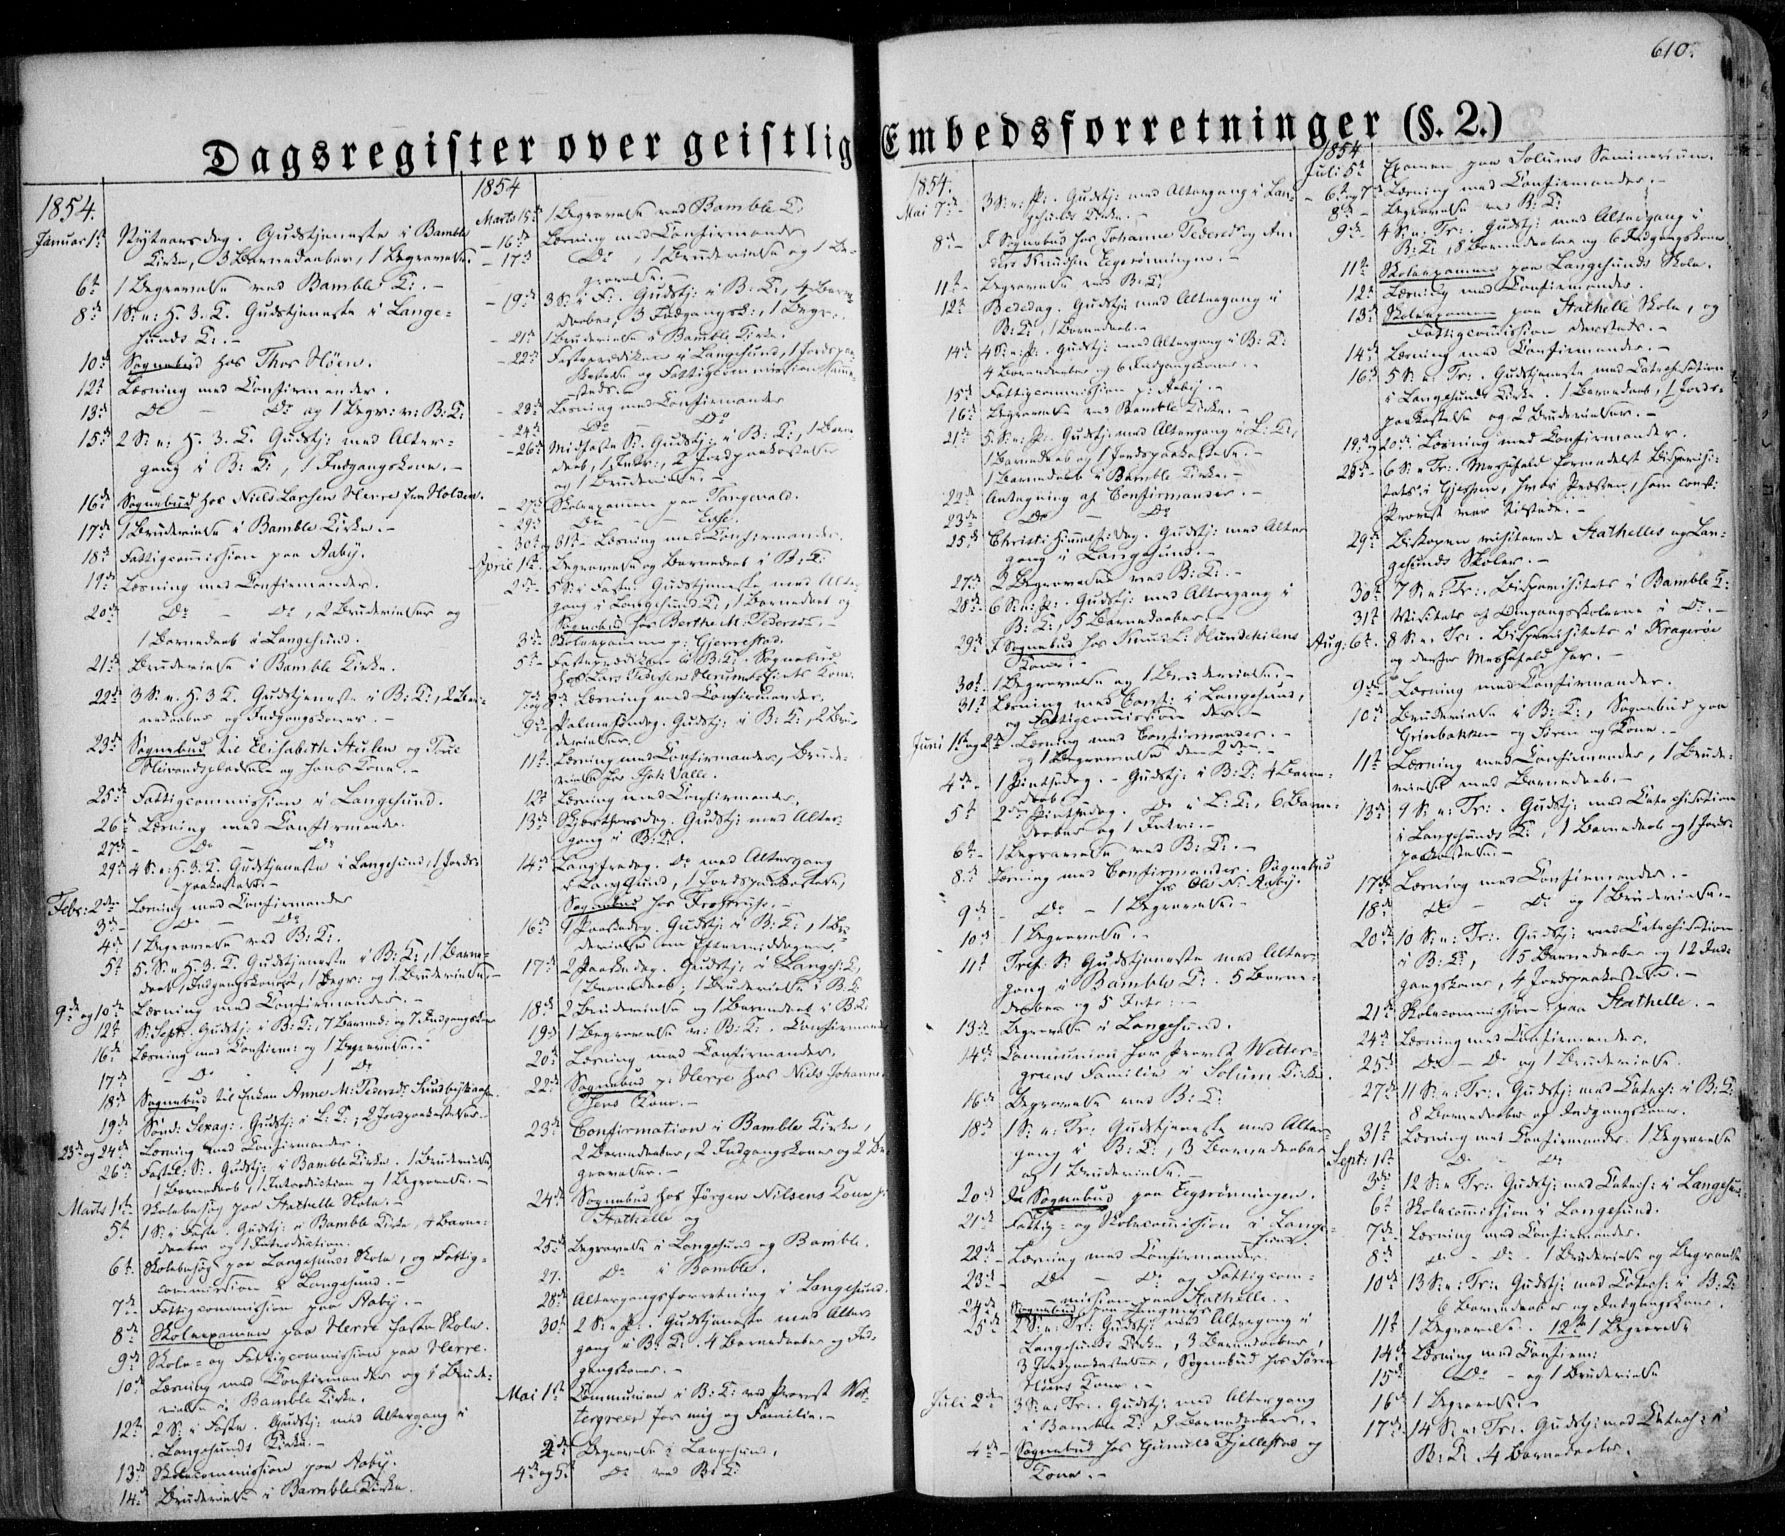 610.
Dagsregister over geistlig Embedsforretninger (§. 2.)
1854.
Januar 1st Nytaarsdag. Gudstjeneste i Bamble
Kirke, 3 Barnedaaber, 1 Begravelse.
6t 1 Begravelse ved Bamble K: -
8de 1 S: e: H. 3. K. Gudstjeneste i Lange-
sunds K: -
10de Sognebud hos Thor Høen.
12t Læsning med Confirmander.
13de Do - Do og 1 Begr: v: B: K:
15de 2 S: e: H. 3. K. Gudstj: med Alter-
gang i B: K:, 1 Indgangskone. -
16de Sognebud hos Niels Larsen Herre
17de 1 Brudevielse i Bamble Kirke. -
18de Fattigcommission paa Aaby.
19de Læsning med Confirmander.
20de Do - Do, 2 Brudevielser og
1 Barnedaab i Langesund.
21de Brudevielse i Bamble Kirke.
22de 3 S. e. H. 3 K. Gudstjeneste i B: K:, 2 Bar-
nedaaber og Indgangskoner. -
23de Sognebud til Elisabeth Stulen og
og hans Kone. -
25de Fattigcommission i Langesund.
26de Læsning med Confirmander.
27de - Do - Do
29de 4 S. e: H. 3. K. Gudstjeneste i Langesund, 1 Jords-
paakastelse. -
Febr: 2den Læsning med Confirmander
3de - Do - Do
4de 1 Begravelse ved B: K:.
5t 5. S: e H. 3. K. Gudstjeneste i B: K:, 1 Barne-
daab, Indgangskone, 1 Begr: og 1 Brudevielse. -
9de og 10de Læsning med Confirmander. -
12t S: Sept: Gudstj: i B: K:, 7 Barned: og 7 Indgangskoner
16de Læsning med Confirm: og 1 Begravelse.
17de - Do 1 Do
18de Sognebud til Enken Anne M: Pedersd:
19de Sønd: Sexag: . Gudstj: i L: K:, 2 Jordpaakastelser.
23de og 24de Læsning med Confirmander.
26de Fastel: S: . Gudstj: i Bamble Kirke. 1 Brudevielse,
1 Barnedaab, 1 Introduction og 1 Begravelse. -
Marts 1st Skolebesøg paa Stathelle Skole. -
5t 1 S: i Faste. Gudstj: i Bamble Kirke, 4 Barne-
daaber og 1 Introduction.
6t Skolebesøg paa Langesunds Skole, og Fattig-
commission i Langesund. -
7de Fattigcommission paa Aaby. -
8de Skoleexamen paa Herre faste Skole.
9de Skole- og Fattigcommission paa Herre.
10de Læsning med Confirmander og 1 Brude-
vielse i Bamble Kirke.
12t 2 S: i Faste. Gudstj: med Altergang i
Langesunds Kirke. -
13de Skolecommission paa Aaby.
14de Brudevielse i Bamble Kirke.
1854
Marts 15de 1 Begravelse ved Bamble K:
- 16de Læsning med Confirmander
- 17de Do, 1 Brudevielse og 1 Be-
gravelse.
- 19de 3 S: i F: . Gudstj: i B: K:, 4 Barne-
daaber, 3 Indgangsk:, 1 Begr: .
- 21de 1 Brudevielse i Bamble Kirke. -
- 22de Fasteprædiken i Langesund, 1 Jordspaa-
kastelse og Fattigcommission samme-
steds. -
- 23de Læsning med Confirmander
- 24de Do - Do
- 26de Midfaste S: Gudstj: i B: K:, 1 Barne-
daab, 1 Intr:, 2 Jordpaakastelser
og 1 Brudevielse. -
- 27de Skoleexamen paa Tangvald.
- 29de Do - - Eche.
- 30te og 31te - Læsning med Confirmander.
April 1st Begravelse og Barnedaab i B: K:
2den 5 S: i Faste. Gudstjeneste med Alter-
gang i Langesunds K:, 1 Barnedaab og
Sognebud hos Berthe M: Pedersd: -
3de Skoleexamen p: Gjerrestad.
5t Fasteprædiken i B: K: Sognebud
hos Lars Pedersen Kone.
7de og 8de Læsning med Confirmander.
9de Palmesøndag. Gudstj: i B: K:, 2 Bru-
devielser.
11te Læsning med Confirmander, Brude-
vielse hos Valle.
12te Læsning med Confirmander.
13de Skjærthorsdag. Gudstj: med Alter-
gang i B: K:.
14de Langfredag. Do med Altergang
i Langesund, 1 Jordspaakastelse,
Sognebud hos
16de 1 Paaskedag. Gudstj: i B: K:, 1 Bru-
devielse om Eftermiddagen.
17de 2 Paaskedag. Gudstj: i Langes: K:,
1 Barnedaab; 1 Brudevielse i B: K:
18de 2 Brudevielser og 1 Barnedaab i B: K:
19de 1 Begravelse v: B: K: . Confirmander
20de Læsning med Confirmander.
22de Sognebud p: Herre hos Niels Johanne-
sens Kone. -
23de Confirmation i Bamble Kirke,
2 Barnedaaber, 2 Indgangskoner og 2 Be-
gravelser. -
24de Sognebud hos Jørgen Nilsens Kone p:
Stathelle og
25de Begravelse i Langesund og Bamble.
27. Do i Bamble.
28de Altergangsforretning i Langesund.
30te 2 S: e: P: . Gudstjeneste med Alter-
gang i B: K: . 4 Barnedaaber og Ind-
gangskoner. -
Mai 1st Communion i B: K: ved Provst Wet-
tergreen for mig og Familie. -
2de Begravelse i Langesund.
4de og 5te Do ved B: K:
1854.
Mai 7de 3 S: e: P: . Gudstj: med Altergang i Lan-
gesunds Kirke. -
8de - Sognebud hos Johanne Pedersd: og An-
ders Knudsen Eegrønningen. -
11te - Begravelse ved B: K:
12te Bededag. Gudstj: med Altergang i
B: K:, 1 Barnedaab. -
14de 4 S: e: P: . Gudstj: med Altergang i B: K:
4 Barnedaaber og 6 Indgangskoner. -
15de Fattigcommission p: Aaby. -
16de Begravelse ved Bamble Kirke. -
21de 5. S: e: P: . Gudstj: med Altergang i L: K:,
1 Barnedaab og 1 Jordspaakastelse. -
1 Barnedaab i Bamble Kirke. -
22de Antagning af Confirmander. -
23de Do - Do
25de Christi Himmelf: dag. Gudstj: med Alter-
gang i Langesund. -
27de 2 Begravelser ved B: K: . -
28de 6 S: e: P: . Gudstj: med Altergang i
B: K:, 5 Barnedaaber. -
29de Sognebud hos Knud L: Hundskilens
Kone. -
30te 1 Begravelse og 1 Brudevielse. -
31te Læsning med Conf: i Langesund,
og Fattigcommission der. -
Juni 1st og 2de . Læsning med Confirmander. -
og 1 Begravelse den 2den. -
4de - 1 Pintsedag. - Gudstj: i B: K: 4 Barne-
daab
5t 2den Pintsedag. Do i L: K:, 6 Barne-
daaber og 1 Intr: -
6t - 1 Begravelse ved B: K: . -
8de Læsning med Confirmander. Sognebud
hos Ole N: Aaby. -
9de - Do - 1 Begravelse. -
10de 1 Begravelse. -
11te Tref: S: Gudstjeneste med Alter-
gang i Bamble K: . 5 Barne-
daaber og 5 Intr: . -
13de Begravelse i Langesund.
14de Communion hos Provst Wetter-
greens Familie i Solum Kirke.
16de Begravelse ved B: K:
18de 1 S: e: Tr: Gudstjeneste med Alter-
gang i B: K:, 3 Barnedaaber
og 1 Brudevielse. -
20de Sognebud paa Eegrønningen.
21de Fattig- og Skolecommission i Lange-
sund.
22de - Læsning med Confirmander.
23de - Do - Do og Fattigcom-
mission paa Stathelle. -
24de Sognebud paa
25de 2 S: e: Tr: Gudstj: med Altergang i
Langesunds Kirke, 3 Barnedaaber,
3 Jordpaakastelser, Sognebud hos Søren
Høens Kone. -
Juli 2de 3 S: e: Tr: . Gudstj: med Altergang
i Bamble K: 8 Barnedaaber. -
4de - Sognebud hos Gunuld Fjellestad og
Kone. -
1854
Juli 5te Examen paa Solums Seminarium.
- 6te og 7de Læsning med Confirmander. -
8de - Begravelse ved B: K:
9de - 4 S: e: Tr: . Gudstj: med Altergang i
B: K:, 8 Barnedaaber og 6 Indgangskoner
11te Skoleexamen paa Langesunds Skole.
12te Læsning med Confirmander.
13de Skoleexamen paa Stathelle Skole, og
Fattigcommission dersteds. -
14de Læsning med Confirmander. -
16de 5 S: e: Tr: . Gudstjeneste med Catechisation
i Langesunds Kirke. 1 Barnedaab, 1 Jords-
paakastelse og 2 Brudevielser. -
19de og 20de: Læsning med Confirmander.
23de - 6 S: e Tr: . Messefald formedelst Bispevisi-
tats i Gjerpen, hvor Præsten, som const:
Provst var tilstede. -
29de Biskopen visiterede Stathelles og Lan-
gesunds Skoler. -
30te 7 S: e: Tr: . Bispevisitats i Bamble K:
31te Visitats af Omgangsskolerne i Do. -
Aug: 6te. 8 S: e. Tr: . Bispevisitats i Kragerøe
og derfor Messefald her. -
9de - Læsning med Confirmander.
10de Brudevielse i B: K:, Sognebud paa
Grinbakken og Søren og Kone. -
11te Læsning med Confirmander, 1 Brude-
vielse med Barnedaab. -
13de 9 S. e: Tr: . Gudstj: med Catechisation
i Langesunds K:, 1 Barnedaab og 1 Jords-
paakastelse. -
17de Læsning med Confirmander. -
18de Do - Do og 1 Brudevielse. -
20de 10 S: e: Tr: . Gudstj: med Catechisation
i B: K:, 15 Barnedaaber og 12 Ind-
gangskoner, 4 Jordspaakastelser. -
21de Skolecommission paa Stathelle. -
24de Læsning med Confirmander.
25de Do - Do og 1 Brudevielse.
27de 11 S: e: Tr: . Gudstj: med Catech: i B: K:
8 Barnedaaber og Indgangskoner.
31te Læsning med Confirmander. 1 Begravelse
Sept: 1st Do - Do
3de 12 S: e Tr: . Gudstj: med Catech: i Langesund
6te Skolecommission i Langesund.
7de - Læsning med Confirmander.
8de Do - Do - 1 Brudevielse og Begravelse
10de 13 S: e: Tr: . Gudstj: med Catech: i B: K:
6 Barnedaaber og Indgangskone.
11te 1 Begravelse. 12te 1 Begravelse
14de Læsning med Confirm:
15de Do - og 1 Brudevielse
16de 1 Begravelse. -
17de 14 S: e: Tr: . Gudstj: med Catech: i
B: K: . 4 Barnedaaber.